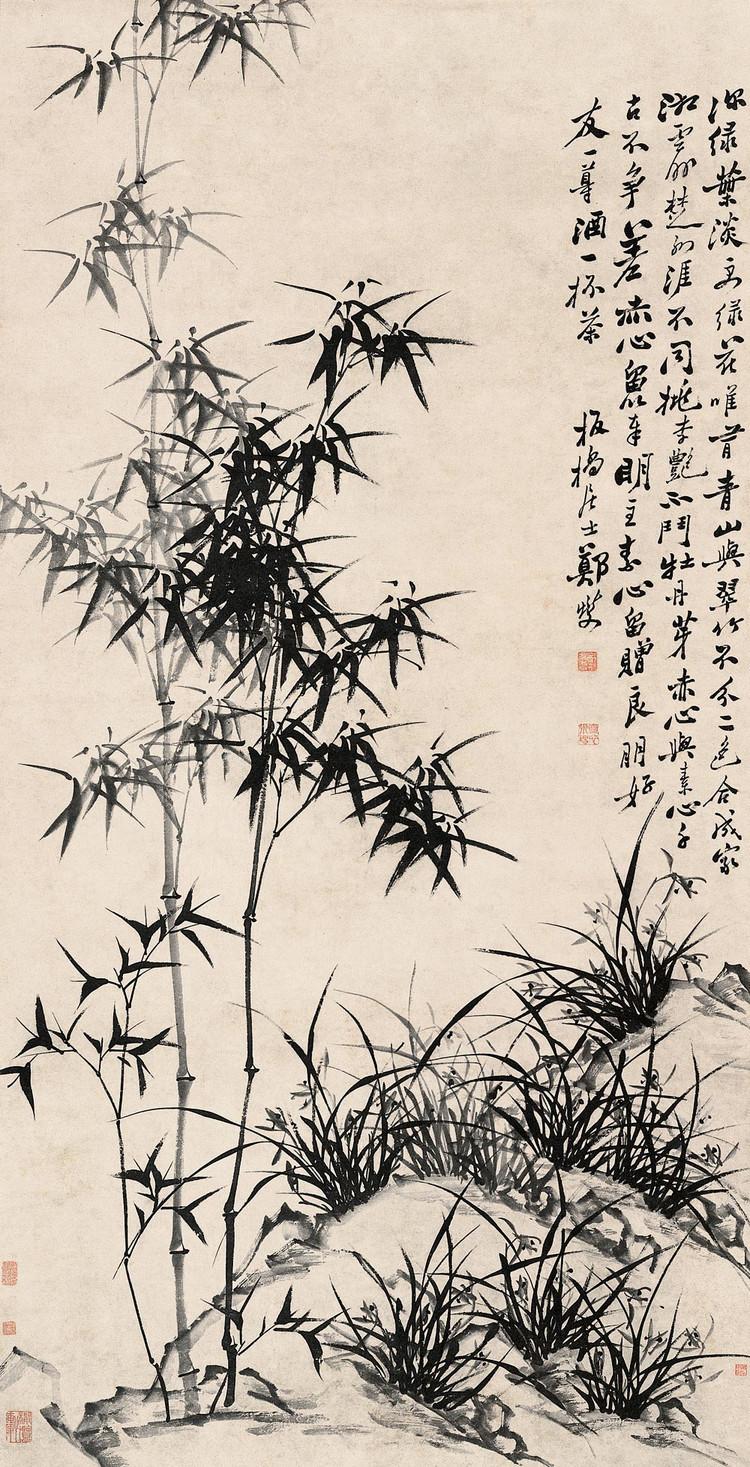 深緑葉淡緑花唯青山與翠竹不分二色合成家
湘雲楚江涯不同桃李艷鬥牡丹芽赤心與素心千
古不爭差赤心留奉明主素心留贈良朋好
友一尊酒一杯茶 板橋居士鄭燮